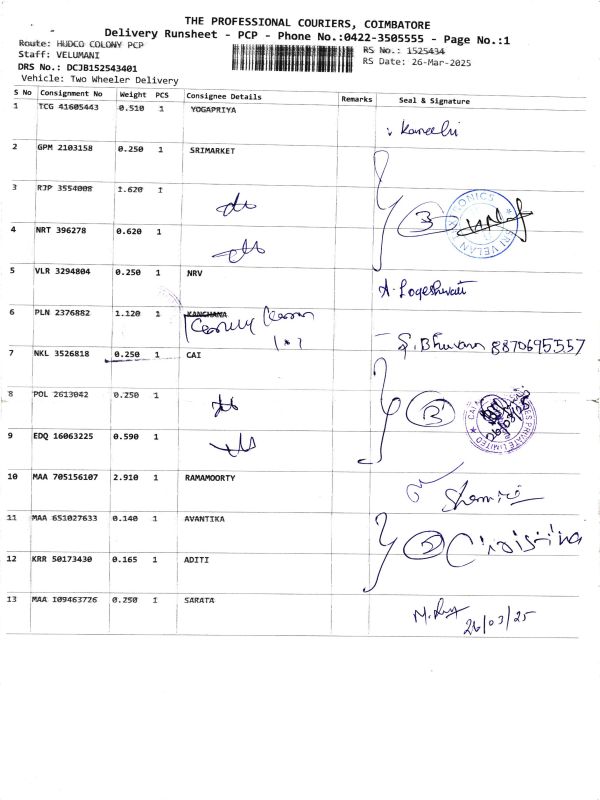 THE PROFESSIONAL COURIERS, COIMBATORE
Delivery Runsheet - PCP - Phone No.:0422-3505555 - Page No.:1
Route: HUDCO COLONY PCP
RS No.: 1525434
Staff: VELUMANI
RS Date: 26-Mar-2025
DRS No.: DCJB152543401
Vehicle: Two Wheeler Delivery
S No Consignment No Weight PCS Consignee Details Remarks Seal & Signature
1 TCG 41605443 0.510 1 YOGAPRIYA
2 GPM 2103158 0.250 1 SRIMARKET
3 RJP 3554008 1.620 1
3
4 NRT 396278 0.620 1
5 VLR 3294804 0.250 1 NRV
A. Logeshwati
6 PLN 2376882 1.120 1 KANCHANA
S. Bhuvana 8870695557
7 NKL 3526818 0.250 1 CAI
8 POL 2613042 0.250 1
3
26/03/25
9 EDQ 16063225 0.590 1
10 MAA 705156107 2.910 1 RAMAMOORTY
11 MAA 651027633 0.140 1 AVANTIKA
2 Christina
12 KRR 50173430 0.165 1 ADITI
13 MAA 109463726 0.250 1 SARATA
26/03/25